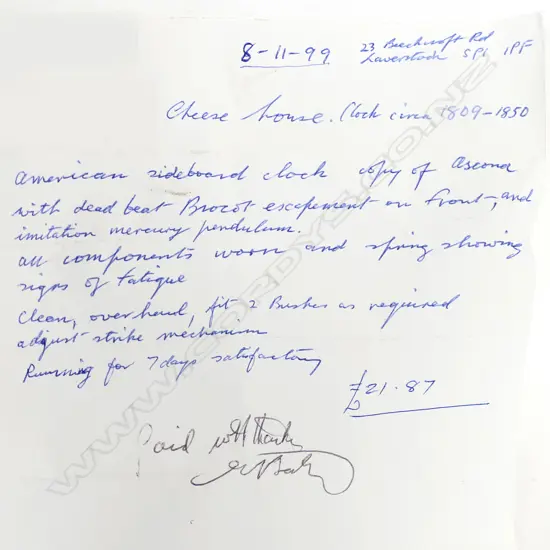 8-11-99
23 Beechcroft Rd
Laverstock SP1 1PF
Cheese house. Clock circa 1809-1850
American sideboard clock copy of Ascona
with dead beat Brocot escapement on front, and
imitation mercury pendulum.
all components worn and spring showing
signs of fatigue
Clean, overhaul, fit 2 Bushes as required
adjust strike mechanism
Running for 7 days satisfactory
£21.87
Paid with thanks
WWW.CORDYS.CO.NZ